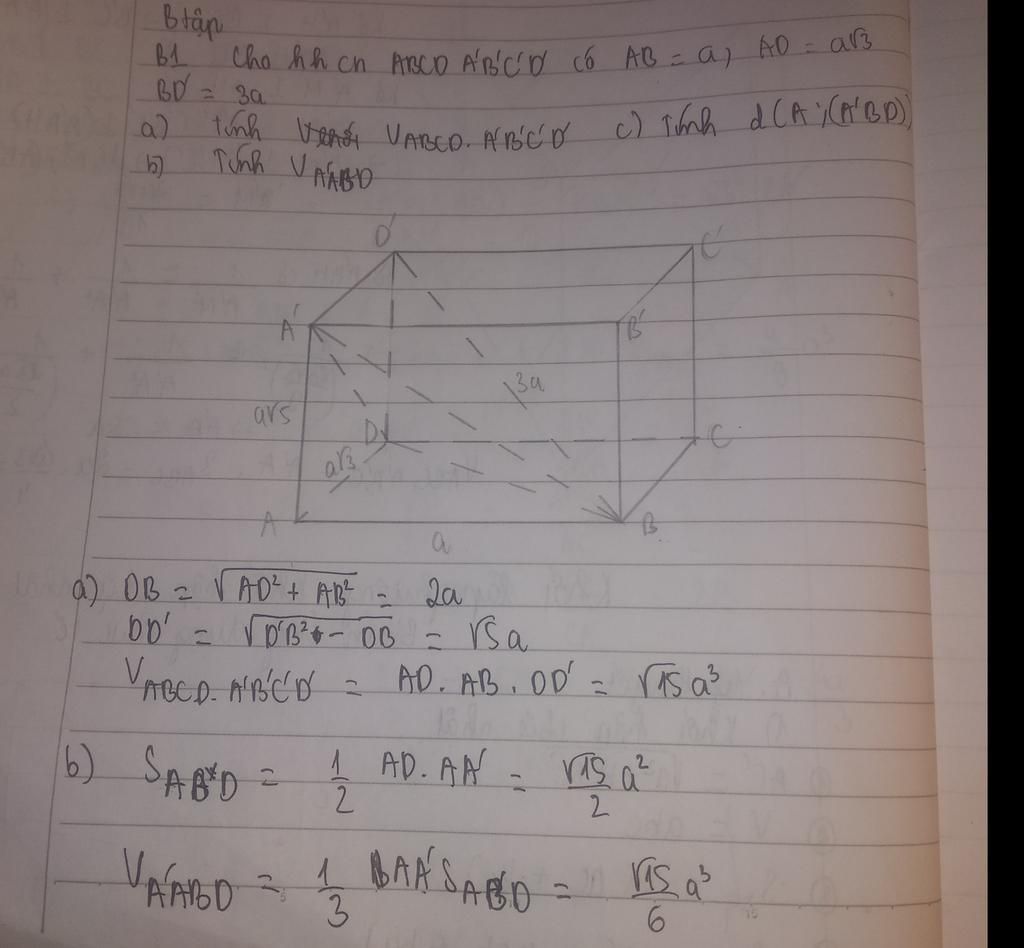 Btập
B1 Cho hh cn ABCD A'B'C'D' có AB = a, AD = a√3
BD' = 3a
a) Tính V_ABCD.A'B'C'D' c) Tính d(A;(A'BD))
b) Tính V_A'ABD
D' C'
A' B'
3a
a√5
D C
a√3
A B
a
a) DB = √(AD² + AB²) = 2a
DD' = √(D'B² - DB) = √5a
V_ABCD.A'B'C'D' = AD. AB. DD' = √15 a³
b) S_ABD = 1/2 AD. AA' = √15/2 a²
V_A'ABD = 1/3 AA' S_ABD = √15/6 a³